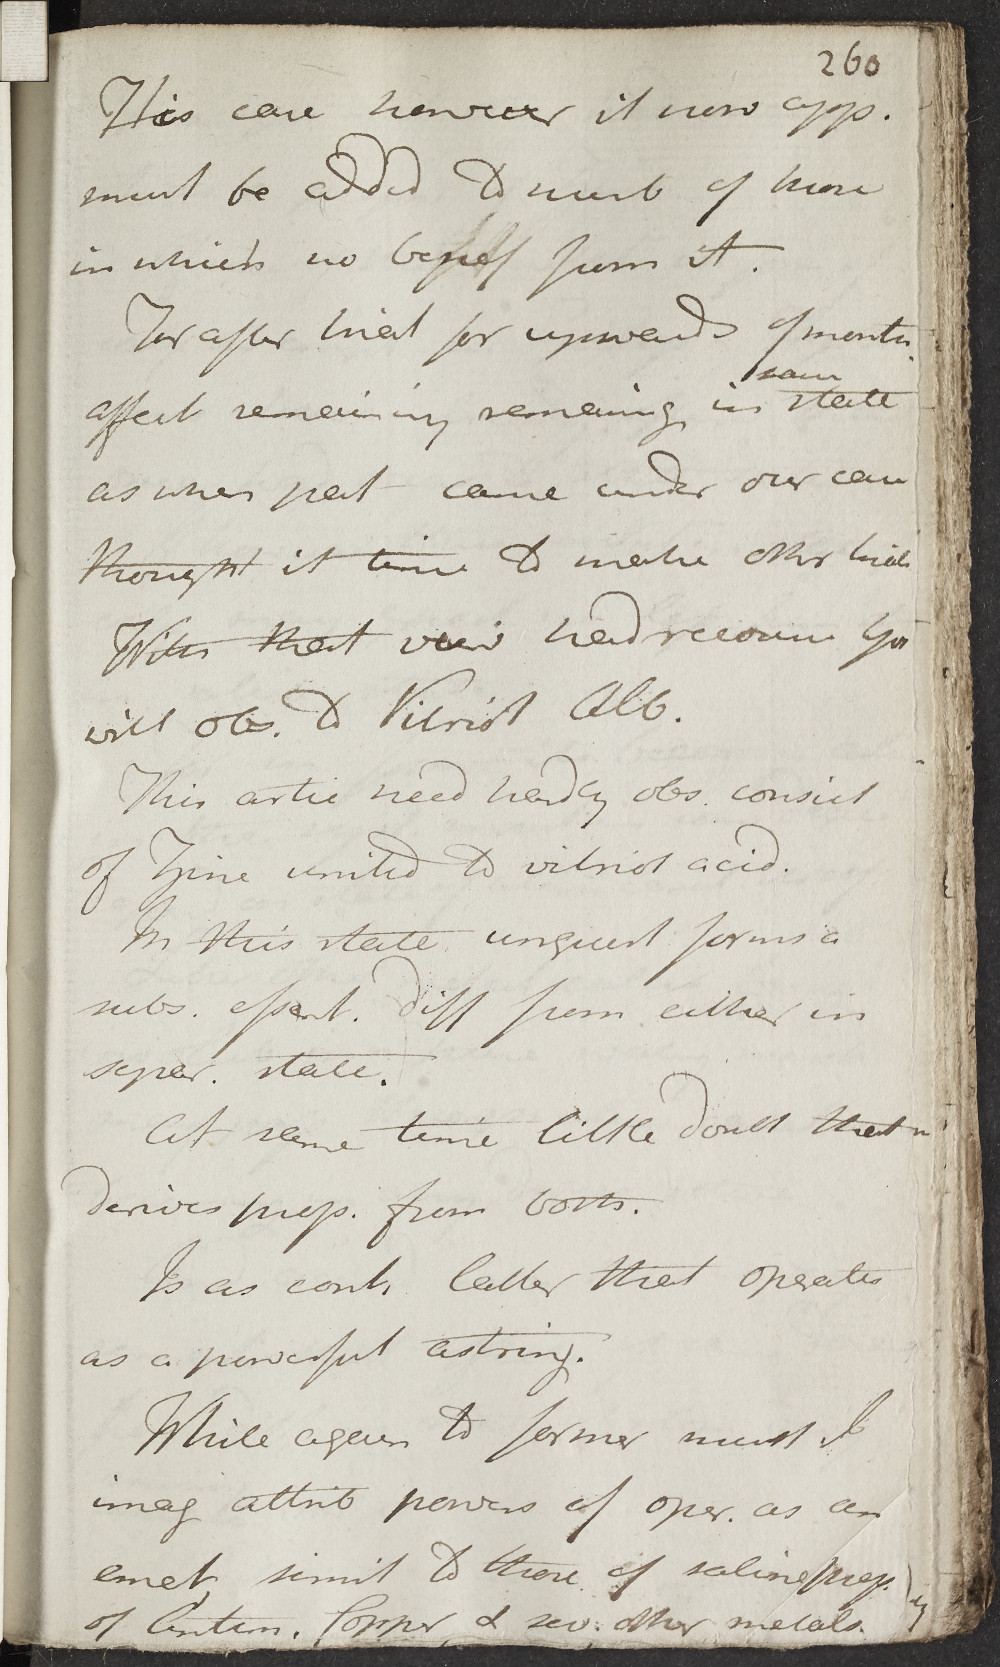 260
This case however it now app.
must be added to numb of those
in which no benef from it.
For after trial for upwards of month
affect remaining remaining in same state
as when pat came under our care
thought it time to make other trials
With that view had recourse you
will obs. to Vitriol Alb.
This artic need hardly obs. consist
of Zinc united to vitriol acid.
In this state unquest forms a
subs. essent. diff from either in
separ. state.
At same time little doubt that
derives prop. from both.
Is as cont. latter that operates
as a powerful astring.
While again to former must I
imag attrib powers of oper. as an
emet simil to those of saline prep.
of Antim. Copper & sev. other metals.